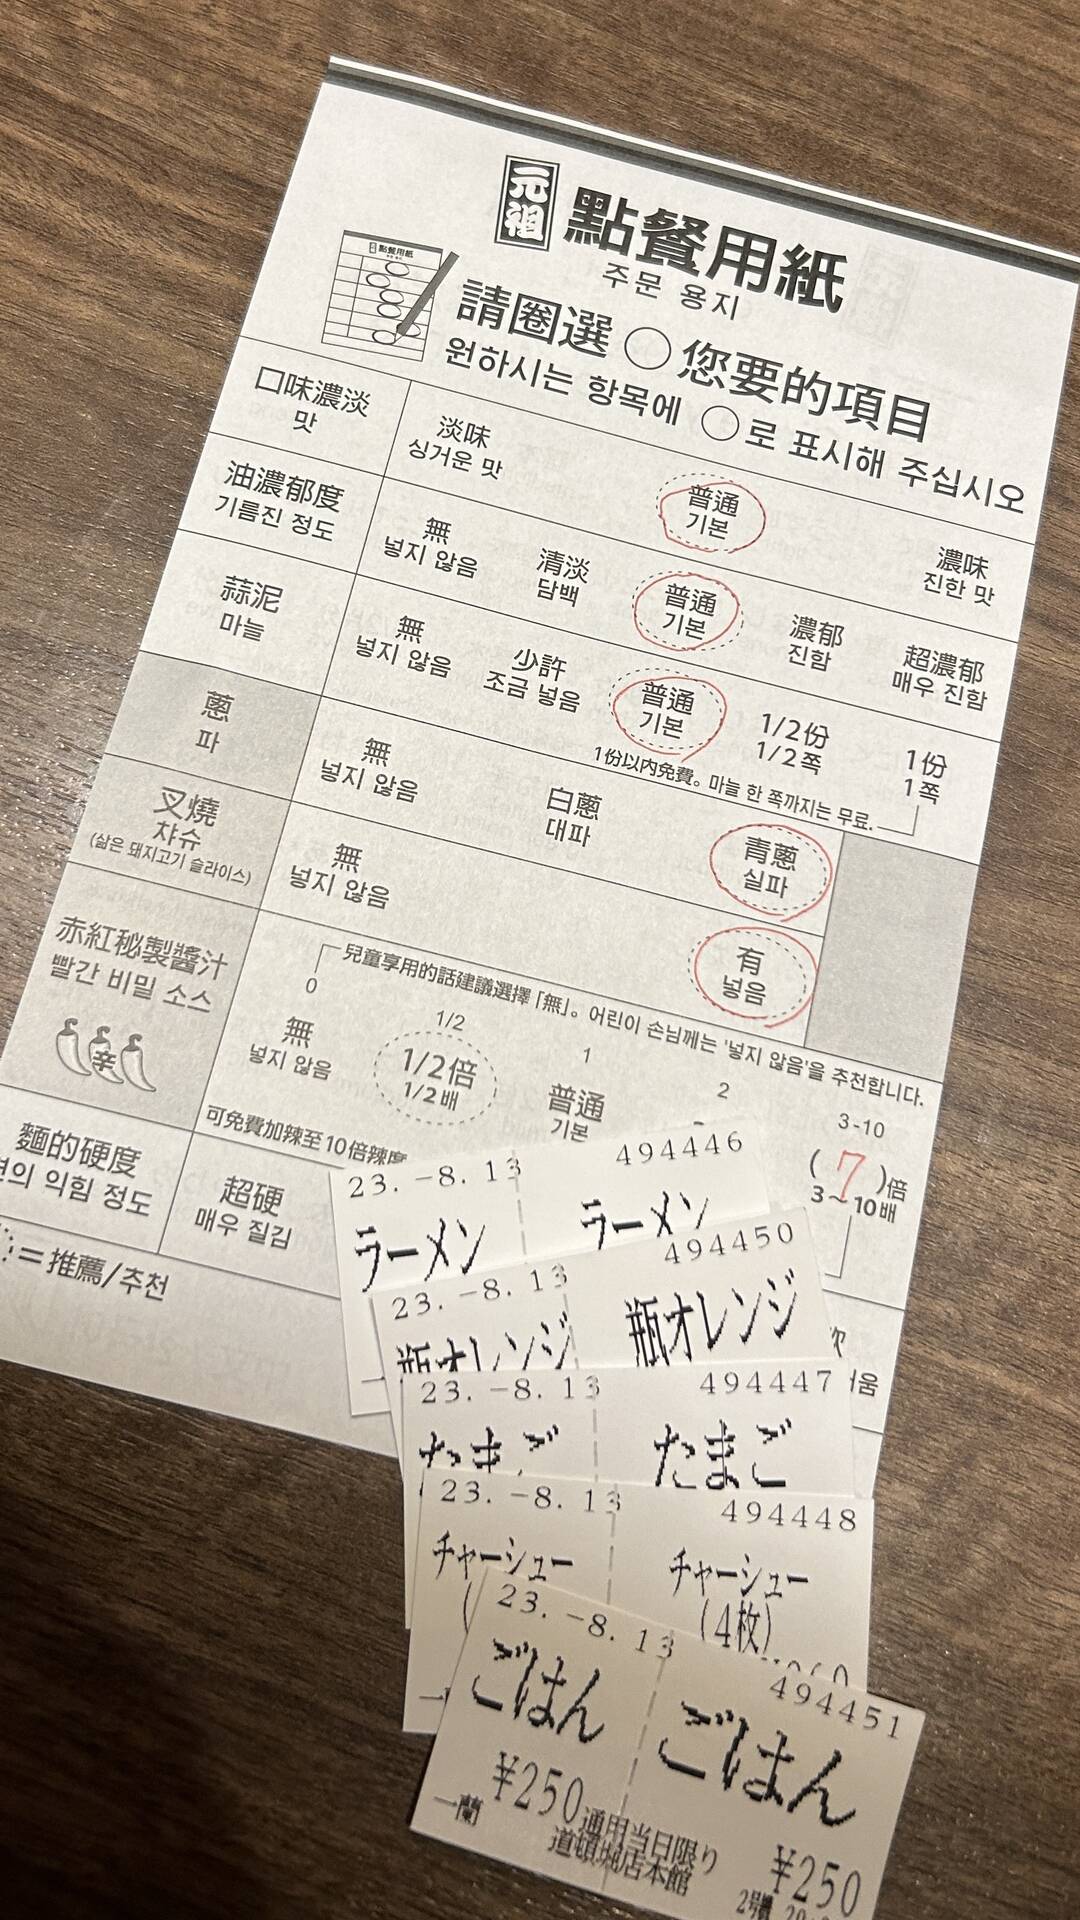 元祖
點餐用紙
주문 용지
點餐用紙
請圈選 ○ 您要的項目
원하시는 항목에 ○로 표시해 주십시오
口味濃淡
맛
淡味
싱거운 맛
普通
기본
濃味
진한 맛
油濃郁度
기름진 정도
無
넣지 않음
清淡
담백
普通
기본
濃郁
진함
超濃郁
매우 진함
蒜泥
마늘
無
넣지 않음
少許
조금 넣음
普通
기본
1/2份
1/2쪽
1份
1쪽
1份以內免費。마늘 한 쪽까지는 무료.
蔥
파
無
넣지 않음
白蔥
대파
青蔥
실파
叉燒
챠슈
(삶은 돼지고기 슬라이스)
無
넣지 않음
有
넣음
赤紅秘製醬汁
빨간 비밀 소스
辛
兒童享用的話建議選擇「無」。어린이 손님께는 '넣지 않음'을 추천합니다.
0
無
넣지 않음
1/2
1/2倍
1/2배
1
普通
기본
2
3-10
(7)倍
3~10배
可免費加辣至10倍辣度
麵的硬度
면의 익힘 정도
超硬
매우 질김
=推薦/추천
23.-8.13
494446
ラーメン
ラーメン
23.-8.13
494450
瓶オレンジ
瓶オレンジ
23.-8.13
494447
たまご
たまご
23.-8.13
494448
チャーシュー
チャーシュー
(4枚)
23.-8.13
494451
ごはん
ごはん
¥250
一蘭
通用当日限り
道頓堀店本館
¥250